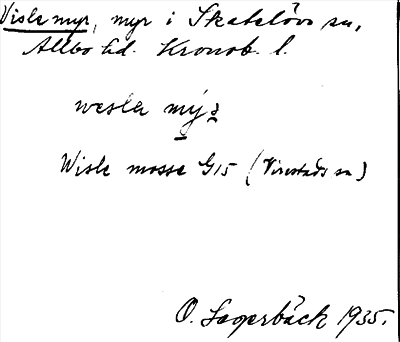 Visle myr, myr i Skatelövs sn,
Allbo hd. Kronob. l.
wesla mýr
Wisle mosse G15 (Virestads sn)
O. Lagerbäck 1935.